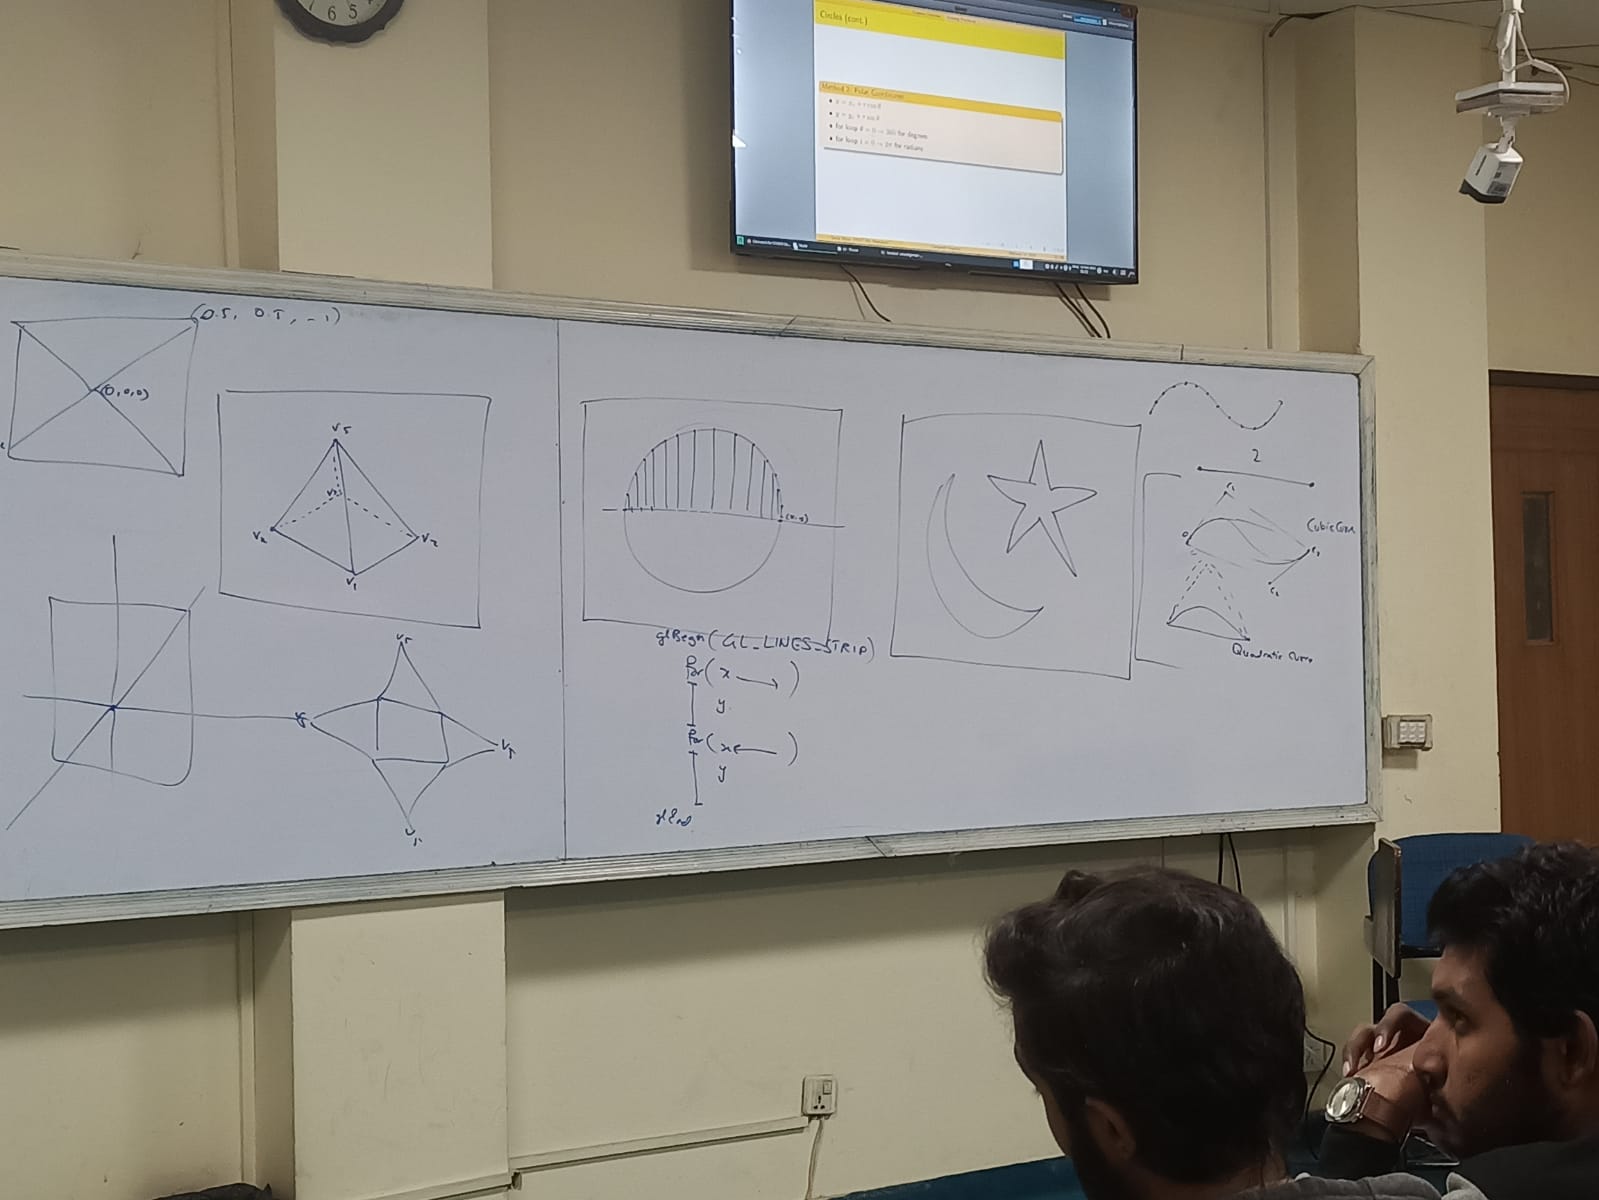 6 5
Circles (cont.)
Method 2: Polar Coordinates
• x = xc + r cos θ
• y = yc + r sin θ
• for loop θ = 0 → 360 for degrees
• for loop i = 0 → 2π for radians
(0.5, 0.5, -1)
(0,0,0)
V5
V3
V4
V2
V1
V5
V5
V5
V5
(x,y)
glBegin(GL_LINES_STRIP)
for(x ⟶)
y
for(x ⟵)
y
glEnd
2
C1
Cubic Curve
C2
Quadratic Curve